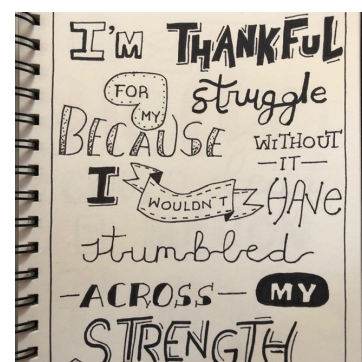 I'M THANKFUL
FOR MY struggle
BECAUSE WITHOUT IT
I WOULDN'T HAVE
stumbled
-ACROSS- MY
STRENGTH